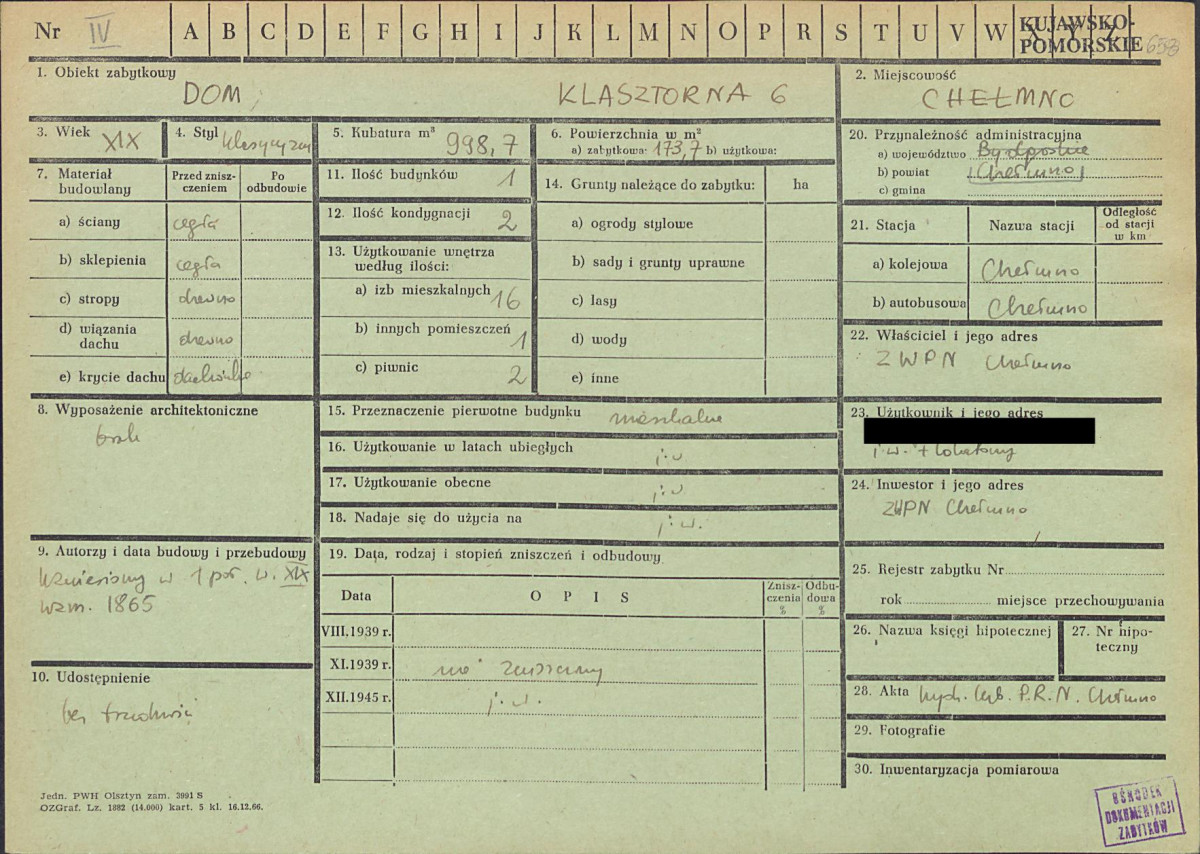 Nr IV A B C D E F G H I J K L M N O P R S T U V W X Y Z KUJAWSKO-
POMORSKIE 658
1. Obiekt zabytkowy
DOM, KLASZTORNA 6
2. Miejscowość
CHEŁMNO
3. Wiek XIX
4. Styl
5. Kubatura m³ 998,7
6. Powierzchnia w m²
a) zabytkowa: 173,7 b) użytkowa:
7. Materiał budowlany
Przed zniszczeniem
Po odbudowie
a) ściany cegła
b) sklepienia cegła
c) stropy drewno
d) wiązania dachu drewno
e) krycie dachu dachówka
8. Wyposażenie architektoniczne
brak
9. Autorzy i data budowy i przebudowy
Wzniesiony w 1 poł. w. XIX
wzm. 1865
10. Udostępnienie
bez trudności
11. Ilość budynków 1
12. Ilość kondygnacji 2
13. Użytkowanie wnętrza
według ilości:
a) izb mieszkalnych 16
b) innych pomieszczeń 1
c) piwnic 2
14. Grunty należące do zabytku: ha
a) ogrody stylowe
b) sady i grunty uprawne
c) lasy
d) wody
e) inne
15. Przeznaczenie pierwotne budynku mieszkalne
16. Użytkowanie w latach ubiegłych j.w
17. Użytkowanie obecne j.w
18. Nadaje się do użycia na j.w.
19. Data, rodzaj i stopień zniszczeń i odbudowy
Data O P I S Zniszczenia % Odbudowa %
VIII.1939 r.
XI.1939 r. nie zniszczony
XII.1945 r. j.w.
20. Przynależność administracyjna
a) województwo Bydgoskie
b) powiat Chełmno
c) gmina
21. Stacja Nazwa stacji Odległość od stacji w km
a) kolejowa Chełmno
b) autobusowa Chełmno
22. Właściciel i jego adres
ZWPN Chełmno
23. Użytkownik i jego adres
j.w. + lokatorzy
24. Inwestor i jego adres
ZWPN Chełmno
25. Rejestr zabytku Nr
rok miejsce przechowywania
26. Nazwa księgi hipotecznej
27. Nr hipo-
teczny
28. Akta P.R.N. Chełmno
29. Fotografie
30. Inwentaryzacja pomiarowa
Jedn. PWH Olsztyn zam. 3991 S
OZGraf. Lz. 1882 (14.000) kart. 5 kl. 16.12.66.
OŚRODEK
DOKUMENTACJI
ZABYTKÓW